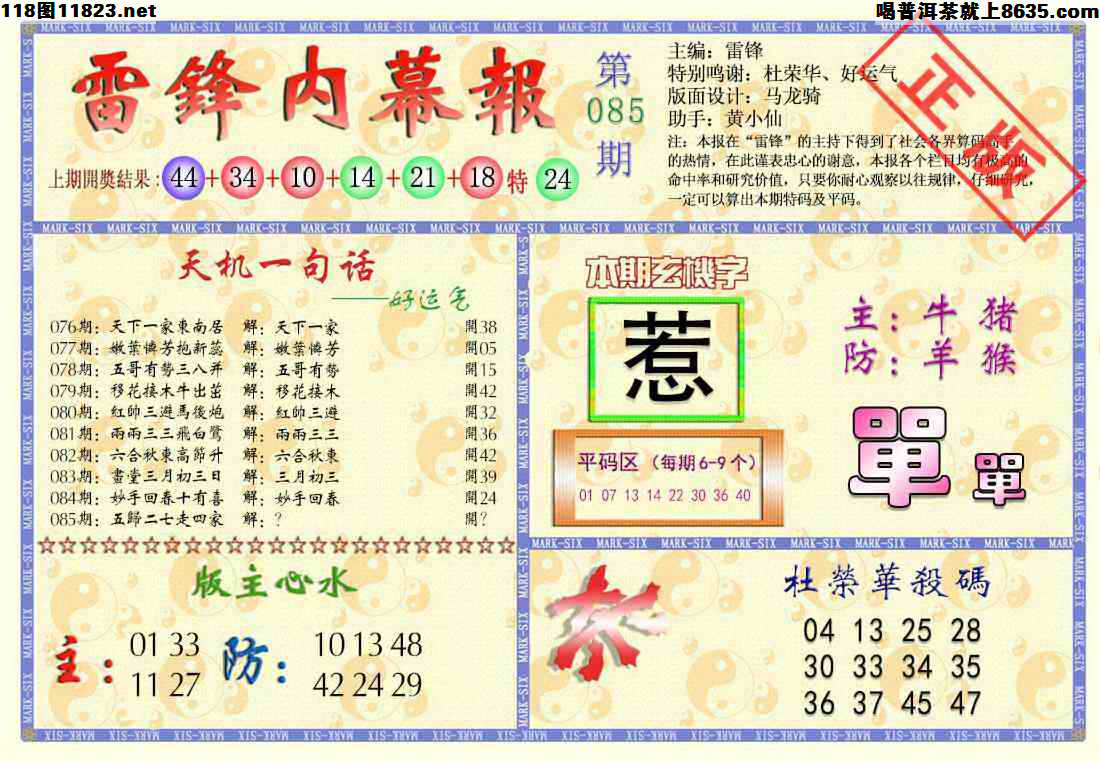 118图11823.net
喝普洱茶就上8635.com
雷鋒内幕報
第
085
期
主编：雷锋
特别鸣谢：杜荣华、好运气
版面设计：马龙骑
助手：黄小仙
注：本报在“雷锋”的主持下得到了社会各界算码高手
的热情，在此谨表忠心的谢意，本报各个栏目均有极高的
命中率和研究价值，只要你耐心观察以往规律，仔细研究，
一定可以算出本期特码及平码。
正版
上期開獎結果：44+34+10+14+21+18特24
天机一句话
——好运气
076期：天下一家東南居 解：天下一家 開38
077期：嫩葉憐芳抱新蕊 解：嫩葉憐芳 開05
078期：五哥有勢三八并 解：五哥有勢 開15
079期：移花接木牛出茁 解：移花接木 開42
080期：紅帥三避馬後炮 解：紅帥三避 開32
081期：兩兩三三飛白鷺 解：兩兩三三 開36
082期：六合秋東高節升 解：六合秋東 開42
083期：畫堂三月初三日 解：三月初三 開39
084期：妙手回春十有喜 解：妙手回春 開24
085期：五歸二七走四家 解：？ 開？
☆☆☆☆☆☆☆☆☆☆☆☆☆☆☆☆☆☆☆☆☆☆☆
版主心水
主：
01 33
11 27
防：
10 13 48
42 24 29
本期玄機字
惹
平码区（每期6-9个）
01 07 13 14 22 30 36 40
主：牛 猪
防：羊 猴
單
單
杀
杜榮華殺碼
04 13 25 28
30 33 34 35
36 37 45 47
MARK-SIX